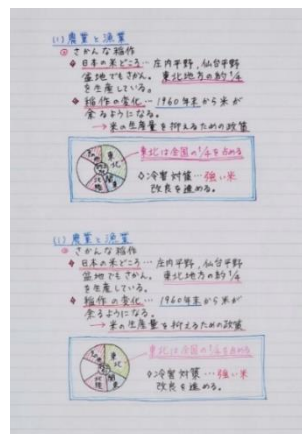 (1) 農業と漁業
① さかんな稲作
◆ 日本の米どころ… 庄内平野、仙台平野
盆地でもさかん。東北地方の約1/4
を生産している。
◆ 稲作の変化… 1960年末から米が
余るようになる。
→ 米の生産量を抑えるための政策
東北
関東
北陸
東北は全国の1/4を占める
◇冷害対策…強い米
改良を進める。
(1) 農業と漁業
① さかんな稲作
◆ 日本の米どころ… 庄内平野、仙台平野
盆地でもさかん。東北地方の約1/4
を生産している。
◆ 稲作の変化… 1960年末から米が
余るようになる。
→ 米の生産量を抑えるための政策
東北
関東
北陸
東北は全国の1/4を占める
◇冷害対策…強い米
改良を進める。